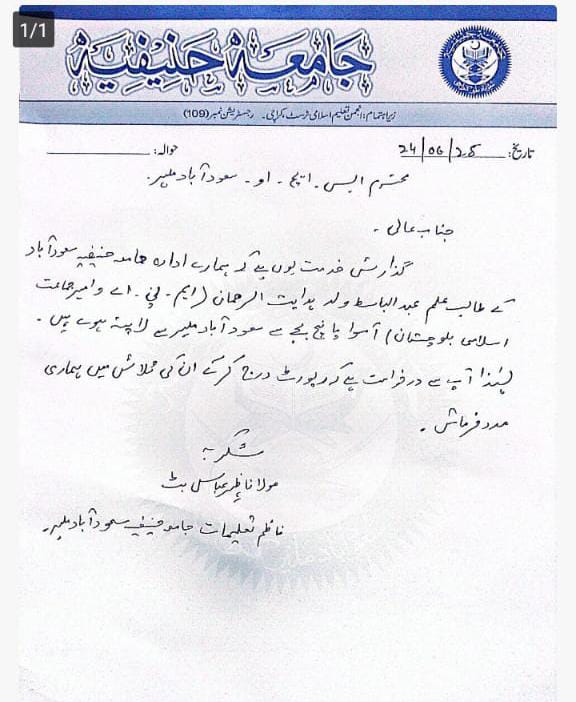 1/1
جامعۃ حنیفیۃ
زیر اہتمام: انجمن تعلیم اسلامی ٹرسٹ کراچی۔ رجسٹریشن نمبر (109)
تاریخ: 24/06/25 حوالہ:
محترم ایس۔ ایچ۔ او۔ سعود آباد ملیر۔
جناب عالی۔
گذارش خدمت یوں ہے کہ ہمارے ادارہ جامعہ حنیفیہ سعود آباد
کے طالب علم عبد الباسط ولد ہدایت الرحمان (ایم۔ پی۔ اے و امیر جماعت
اسلامی بلوچستان) پانچ بجے سے سعود آباد ملیر سے لاپتہ ہوے ہیں۔
لہٰذا آپ سے درخواست ہے کہ رپورٹ درج کر کے ان کی تلاش میں ہماری
مدد فرمائیں۔
شکریہ
مولانا عباس بٹ
ناظم تعلیمات جامعہ حنیفیہ سعود آباد ملیر۔